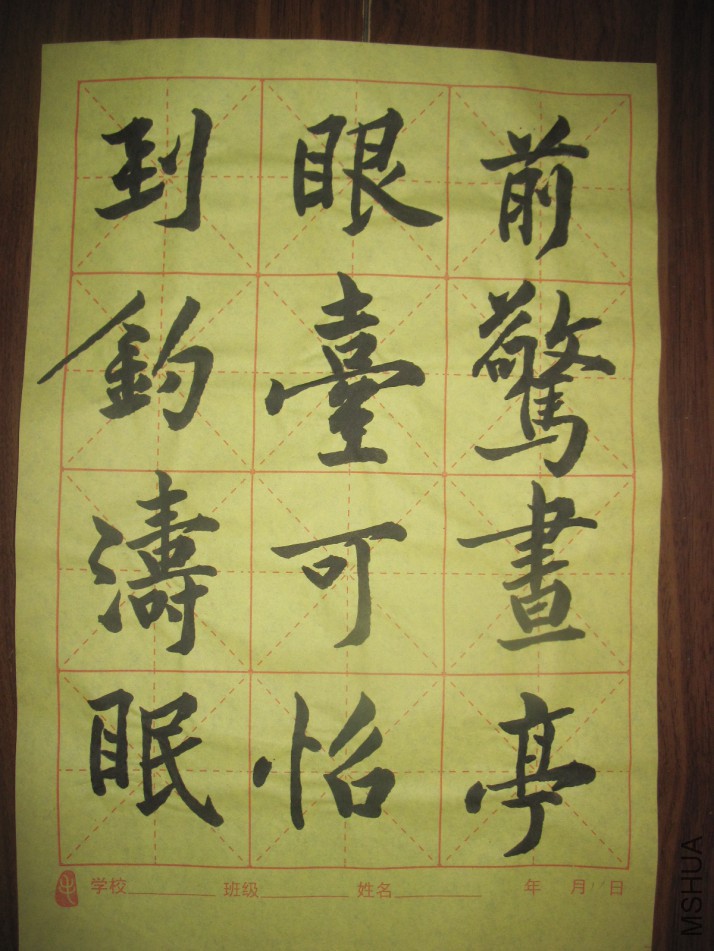 到眼前
釣臺驚
濤可晝
眠怡亭
学校________ 班级________ 姓名________ 年 月 日
MSHUA